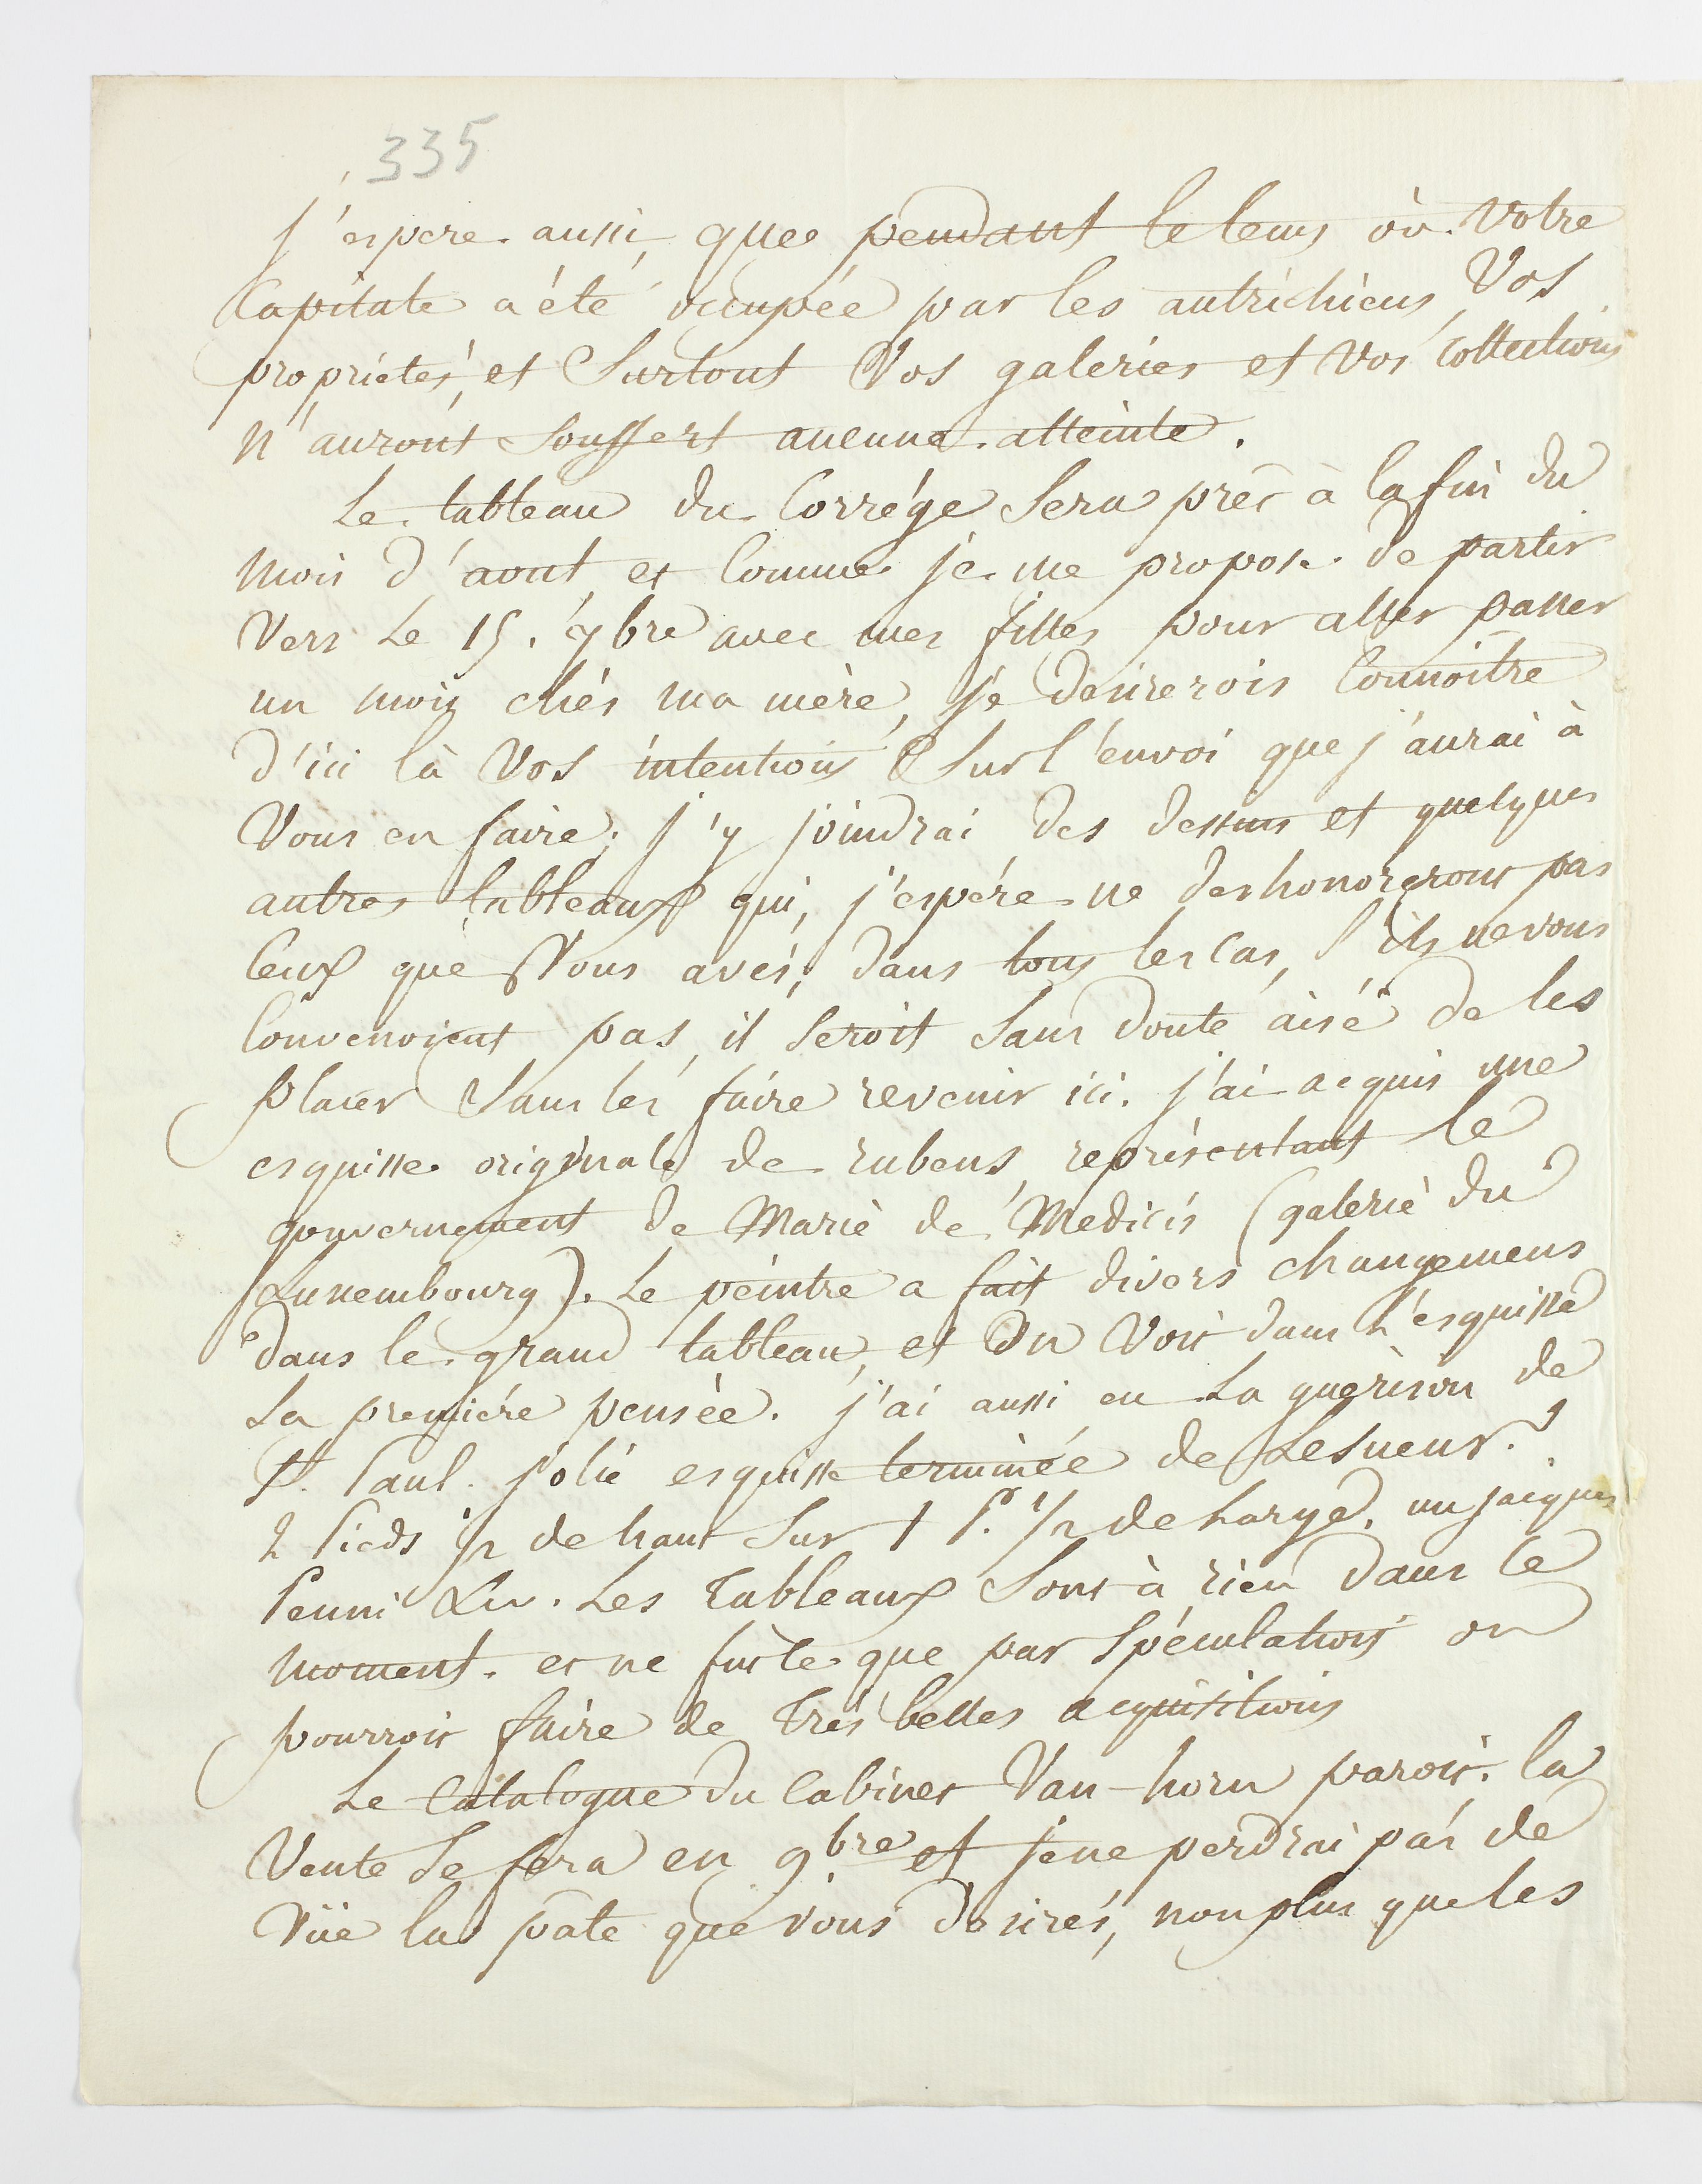 335
J'espere aussi, que pendant le tems où votre
Capitale a été occupée par les autrichiens, Vos
propriétés, et Surtout Vos galeries et Vos collections
n'auront Souffert aucune atteinte.
Le tableau du Corrége Sera prêt à la fin du
mois d'aout, et Comme je me propose de partir
Vers Le 15. 9bre avec mes filles pour aller passer
un mois chés ma mère, je desirerois Connoitre
d'ici là Vos intentions Sur l'envoi que j'aurai à
Vous en faire; j'y joindrai des dessins et quelques
autres tableaux qui, j'espére ne deshonorerons pas
Ceux que Vous avés; dans tous les Cas, S'ils ne vous
Convenoient pas, il Seroit Sans doute aisé de les
placer Sans les faire revenir ici. j'ai acquis une
esquisse originale de rubens, représentant le
gouvernement de Marie de Medicis (galerie du
Luxembourg). Le peintre a fait divers changemens
dans le grand tableau, et On Voit dans L'esquisse
La première pensée. j'ai aussi eu La guerison de
St. Paul. jolie esquisse terminée de Lesueur.
2 Pieds 1/2 de haut Sur 1 P. 1/2 de Large. un jacques
Penni &c. Les Tableaux Sont à rien dans ce
moment. et ne fusse que par Spéculations on
pourroit faire de Très belles acquisitions
Le Catalogue du Cabinet Van-horn paroit. la
Vente Se fera en 9.bre et je ne perdrai pas de
Vüe la pâte que vous desirés, non plus que les